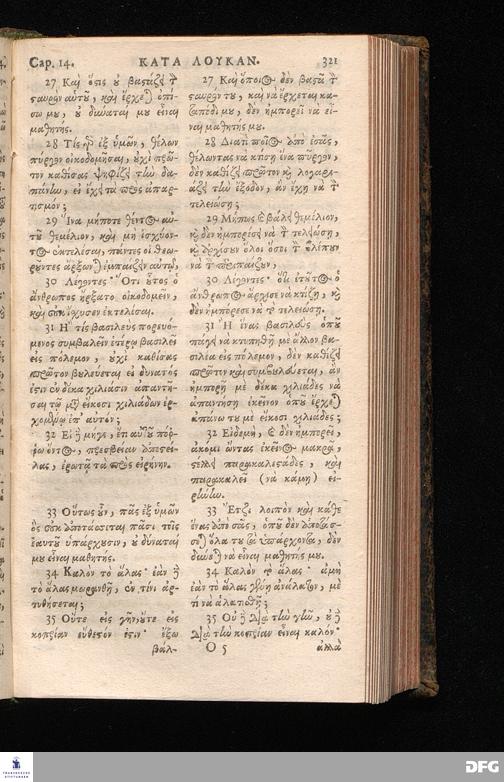 Cap. 14. ΚΑΤΑ ΛΟΥΚΑΝ. 321
27 Καὶ ὅςις ȣ̓ βαςάζει τ̀
ςαυρὸν αὑτȣ͂, καὶ ἔρχε) ὀπί-
σω μȣ, ȣ̓ δύναταί μȣ εἶναι
μαθητής.
28 Τίς γὸ ἐξ ὑμῶν, θέλων
πύργον οἰκοδομῆσαι, ȣ̓χὶ πρῶ-
τον καθίσας ψηφίζει τἰω δα-
πάνἰω, εἰ ἔχει τὰ πρὸς ἀπαρ-
τισμόν;
29 Ἵνα μήποτε θέντος αὐ-
τȣ͂ θεμέλιον, καὶ μὴ ἰσχύον-
τος ἐκτελέσαι, πάντες οἱ θεω-
ρȣ͂ντες ἄρξων) ἐμπαίζειν αὐτῷ,
30 Λέγοντες· Ὅτι ȣ̔͂τος ὁ
ἄνθρωπος ἤρξατο οἰκοδομεῖν,
καὶ ȣ̓κ ἴχυσεν ἐκτελέσαι.
31 Ἢ τίς βασιλεὺς πορευό-
μενος συμβαλεῖν ἑτέρῳ βασιλεῖ
εἰς πόλεμον, ȣ̓χὶ καθίσας
πρῶτον βȣλεύεται εἰ δυνατός
ἐςιν ἐν δέκα χιλιάσιν ἀπαντῆ-
σαι τῷ μ͂ εἴκοσι χιλιάδων ἐρ-
χομένῳ ἐπ' αὐτόν;
32 Εἰ ἢ μήγε, ἔτι αὐτȣ͂ πόῤ-
ῥω ὄντος, πρεσβείαν ἀποςεί-
λας, ἐρωτᾷ τὰ πρὸς εἰρήνην.
33 Οὕτως ȣ̓͂ν, πᾶς ἐξ ὑμῶν
ὃς ȣ̓κ ἀποτάσσεται πᾶσι τοῖς
ἑαυτȣ͂ ὑπάρχȣσιν, ȣ̓ δύναταί
μȣ εἶναι μαθητής.
34 Καλὸν τὸ ἅλας· ἐὰν ἢ
τὸ ἅλας μωρανθῇ, ἐν τίνι ἀρ-
τυθήσεται;
35 Οὔτε εἰς γῆν, ȣ̓́τε εἰς
κοπρίαν εὔθετόν ἐςιν· ἔξω
βάλ-
27 Καὶ ὅποιος δὲν βαςᾶ τ̀
ςαυρόν τȣ, καὶ νὰ ἔρχεται κα-
ταπόδι μȣ, δὲν ἠμπορεῖ νὰ εἶ-
ναι μαθητής μȣ.
28 Διατὶ ποῖος ἀπὸ ἐσᾶς,
θέλωντας νὰ κτίσῃ ἕνα πύργον,
δὲν καθίζει πρῶτον κ̀ λογαρι-
άζει τἰω ἔξοδον, ἂν ἔχῃ νὰ τ̀
τελειώσῃ;
29 Μήπως κ̀ βάλῃ θεμέλιον,
κ̀ δὲν ἠμπορέσῃ νὰ τ̀ τελειώσῃ,
κ̀ ἀρχίσȣν ὅλοι ὅσοι τ̀ βλέπȣν
νὰ τ̀ περιπαίζȣν,
30 Λέγοντες· ὅτι ἐτȣ͂τος ὁ
ἄνθρωπος ἄρχισε νὰ κτίζῃ, κ̀
δὲν ἠμπόρεσε νὰ τὸ τελειώσῃ.
31 Ἢ ἕνας βασιλεὺς ὁπȣ̂
πάγῃ νὰ κτυπηθῇ μὲ ἄλλον βα-
σιλέα εἰς πόλεμον, δὲν καθίζει
πρῶτον καὶ συμβȣλεύεται, ἂν
ἠμπορῇ μὲ δέκα χιλιάδες νὰ
ἀπαντήσῃ ἐκεῖνον ὁπȣ̂ ἔρχε)
ἀπάνω τȣ μὲ εἴκοσι χιλιάδες;
32 Εἰδεμὴ, κ̀ δὲν ἠμπορεῖ,
ἀκόμι ὄντας ἐκεῖνος μακρὰ,
ςέλλει παρακαλεςάδες, καὶ
παρακαλεῖ (νὰ κάμῃ) εἰ-
ρήνἰω.
33 Ἔτζι λοιπὸν καὶ κάθε
ἕνας ἀπὸ σᾶς, ὁπȣ̂ δὲν ἀποτάσ-
σε) ὅλα τȣ τὰ ὑπάρχοντα, δὲν
δύνε) νὰ εἶναι μαθητής μȣ.
34 Καλὸν τὸ ἅλας· ἀμὴ
ἐὰν τὸ ἅλας γένῃ ἀνάλατον, μὲ
τί νὰ ἀλατισθῇ;
35 Οὔτε διὰ τἰω γἰῶ, ȣ̓́τε
διὰ τἰω κοπρίαν εἶναι καλόν·
O 5 ἀλλὰ
DFG